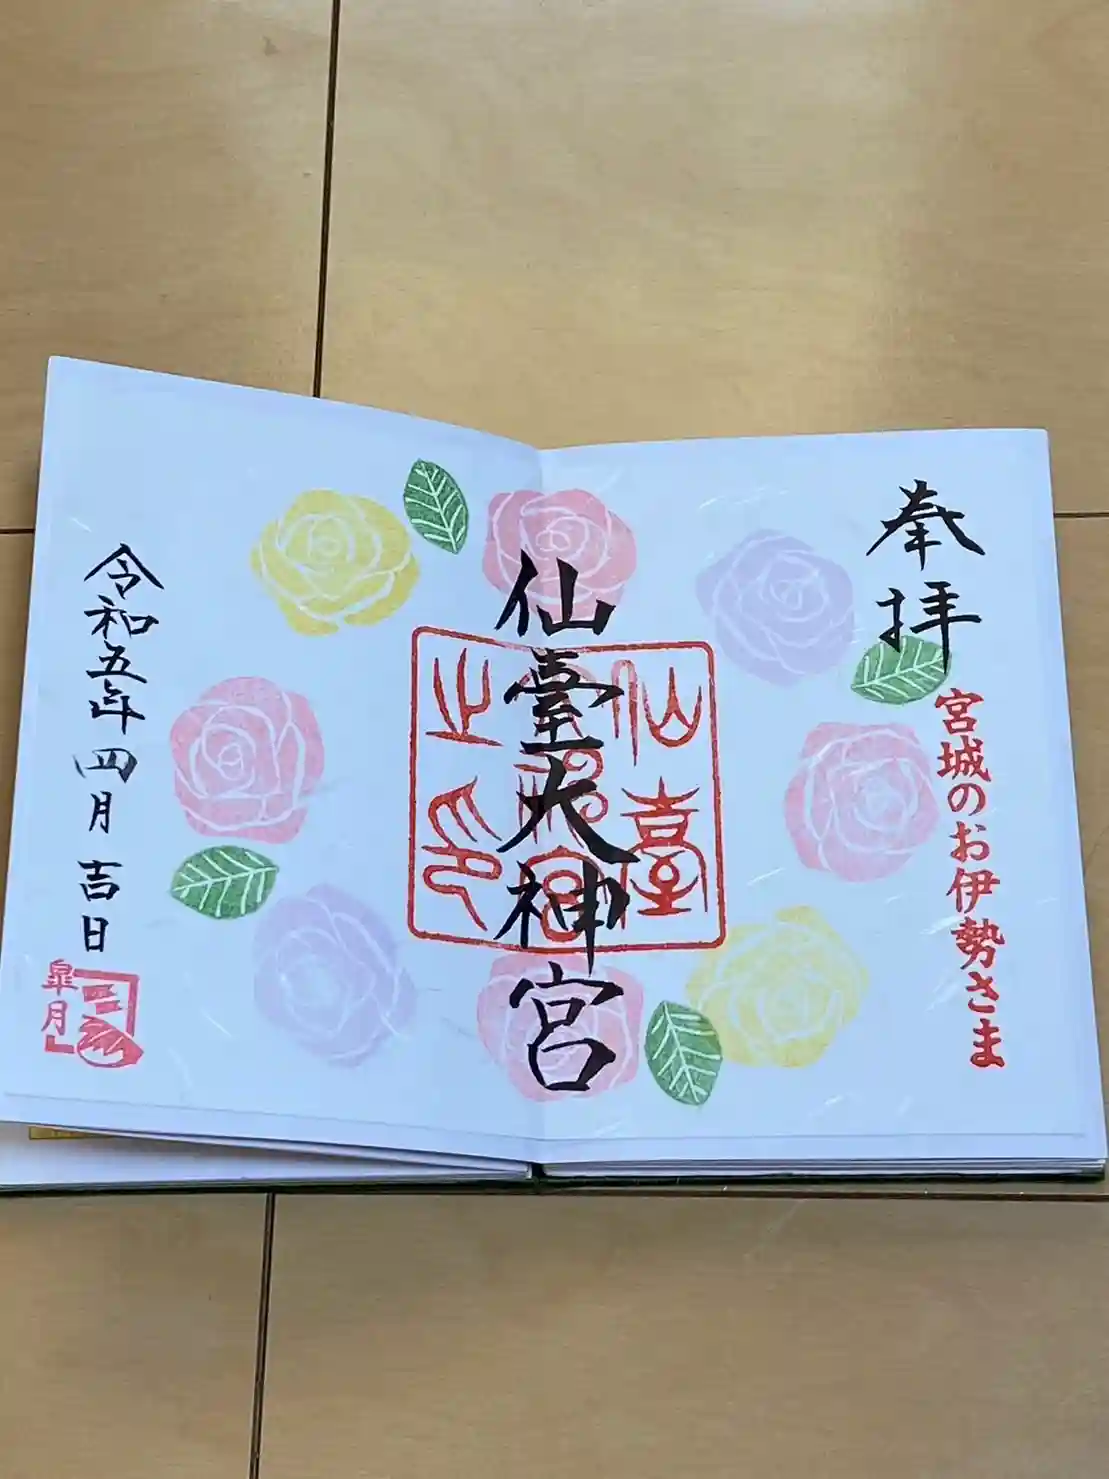 奉拝
宮城のお伊勢さま
仙臺大神宮
仙臺
大神宮
之印
令和五年四月吉日
皐月